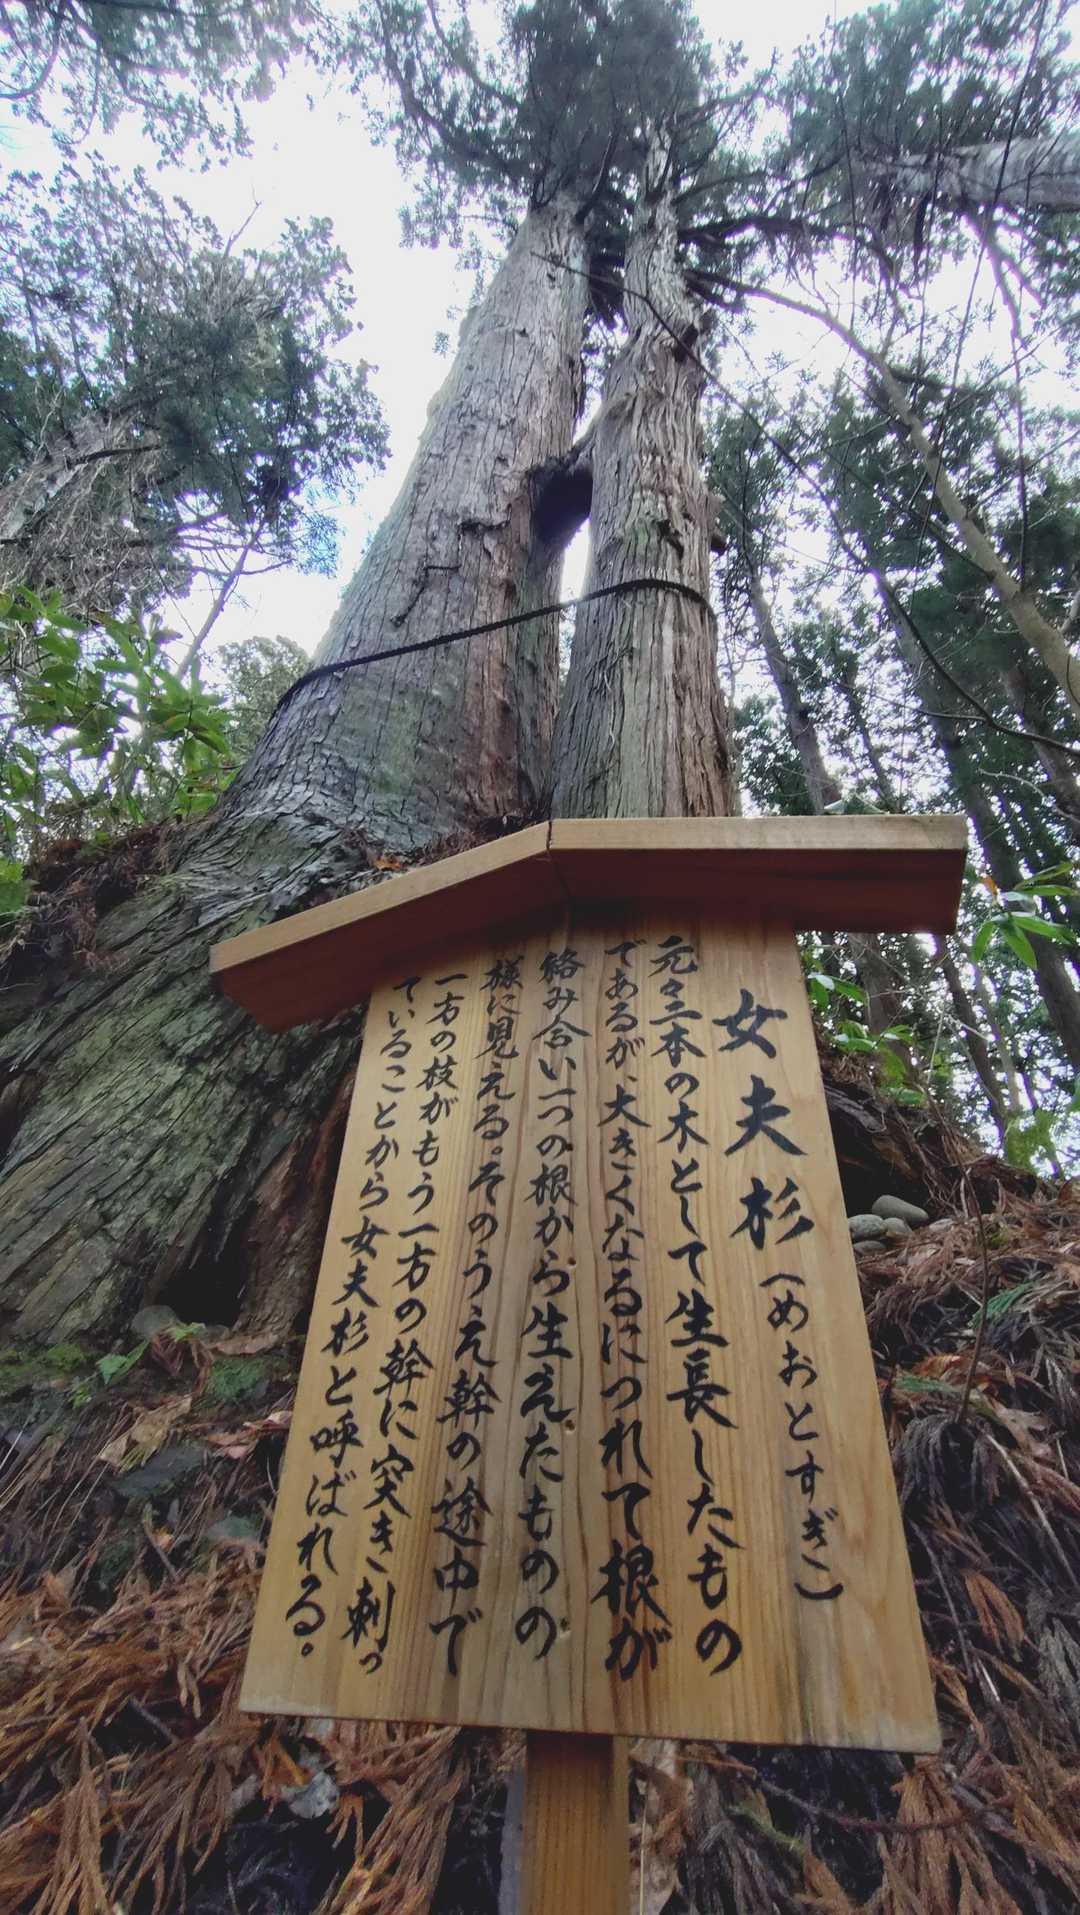 女夫杉（めおとすぎ）
元々二本の木として生長したもの
であるが、大きくなるにつれて根が
絡み合い一つの根から生えたものの
様に見える。そのうえ幹の途中で
一方の枝がもう一方の幹に突き刺っ
ていることから女夫杉と呼ばれる。